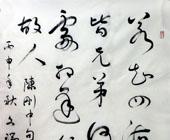 若知四
皆兄弟何
處相逢
故人 陳剛中句
丙申年秋文